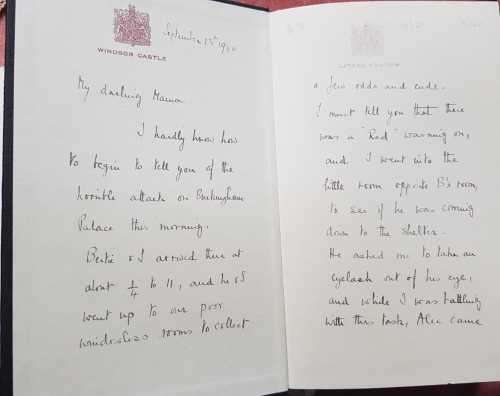 WINDSOR CASTLE
September 13th 1940
My darling Mama
I hardly know how
to begin to tell you of the
horrible attack on Buckingham
Palace this morning.
Bertie & I arrived there at
about 1/4 to 11, and he & I
went up to our poor
windowless rooms to collect
a few odds and ends.
I must tell you that there
was a "Red" warning on,
and I went into the
little room opposite B's room,
to see if he was coming
down to the shelter.
He asked me to take an
eyelash out of his eye,
and while I was battling
with this task, Alec came